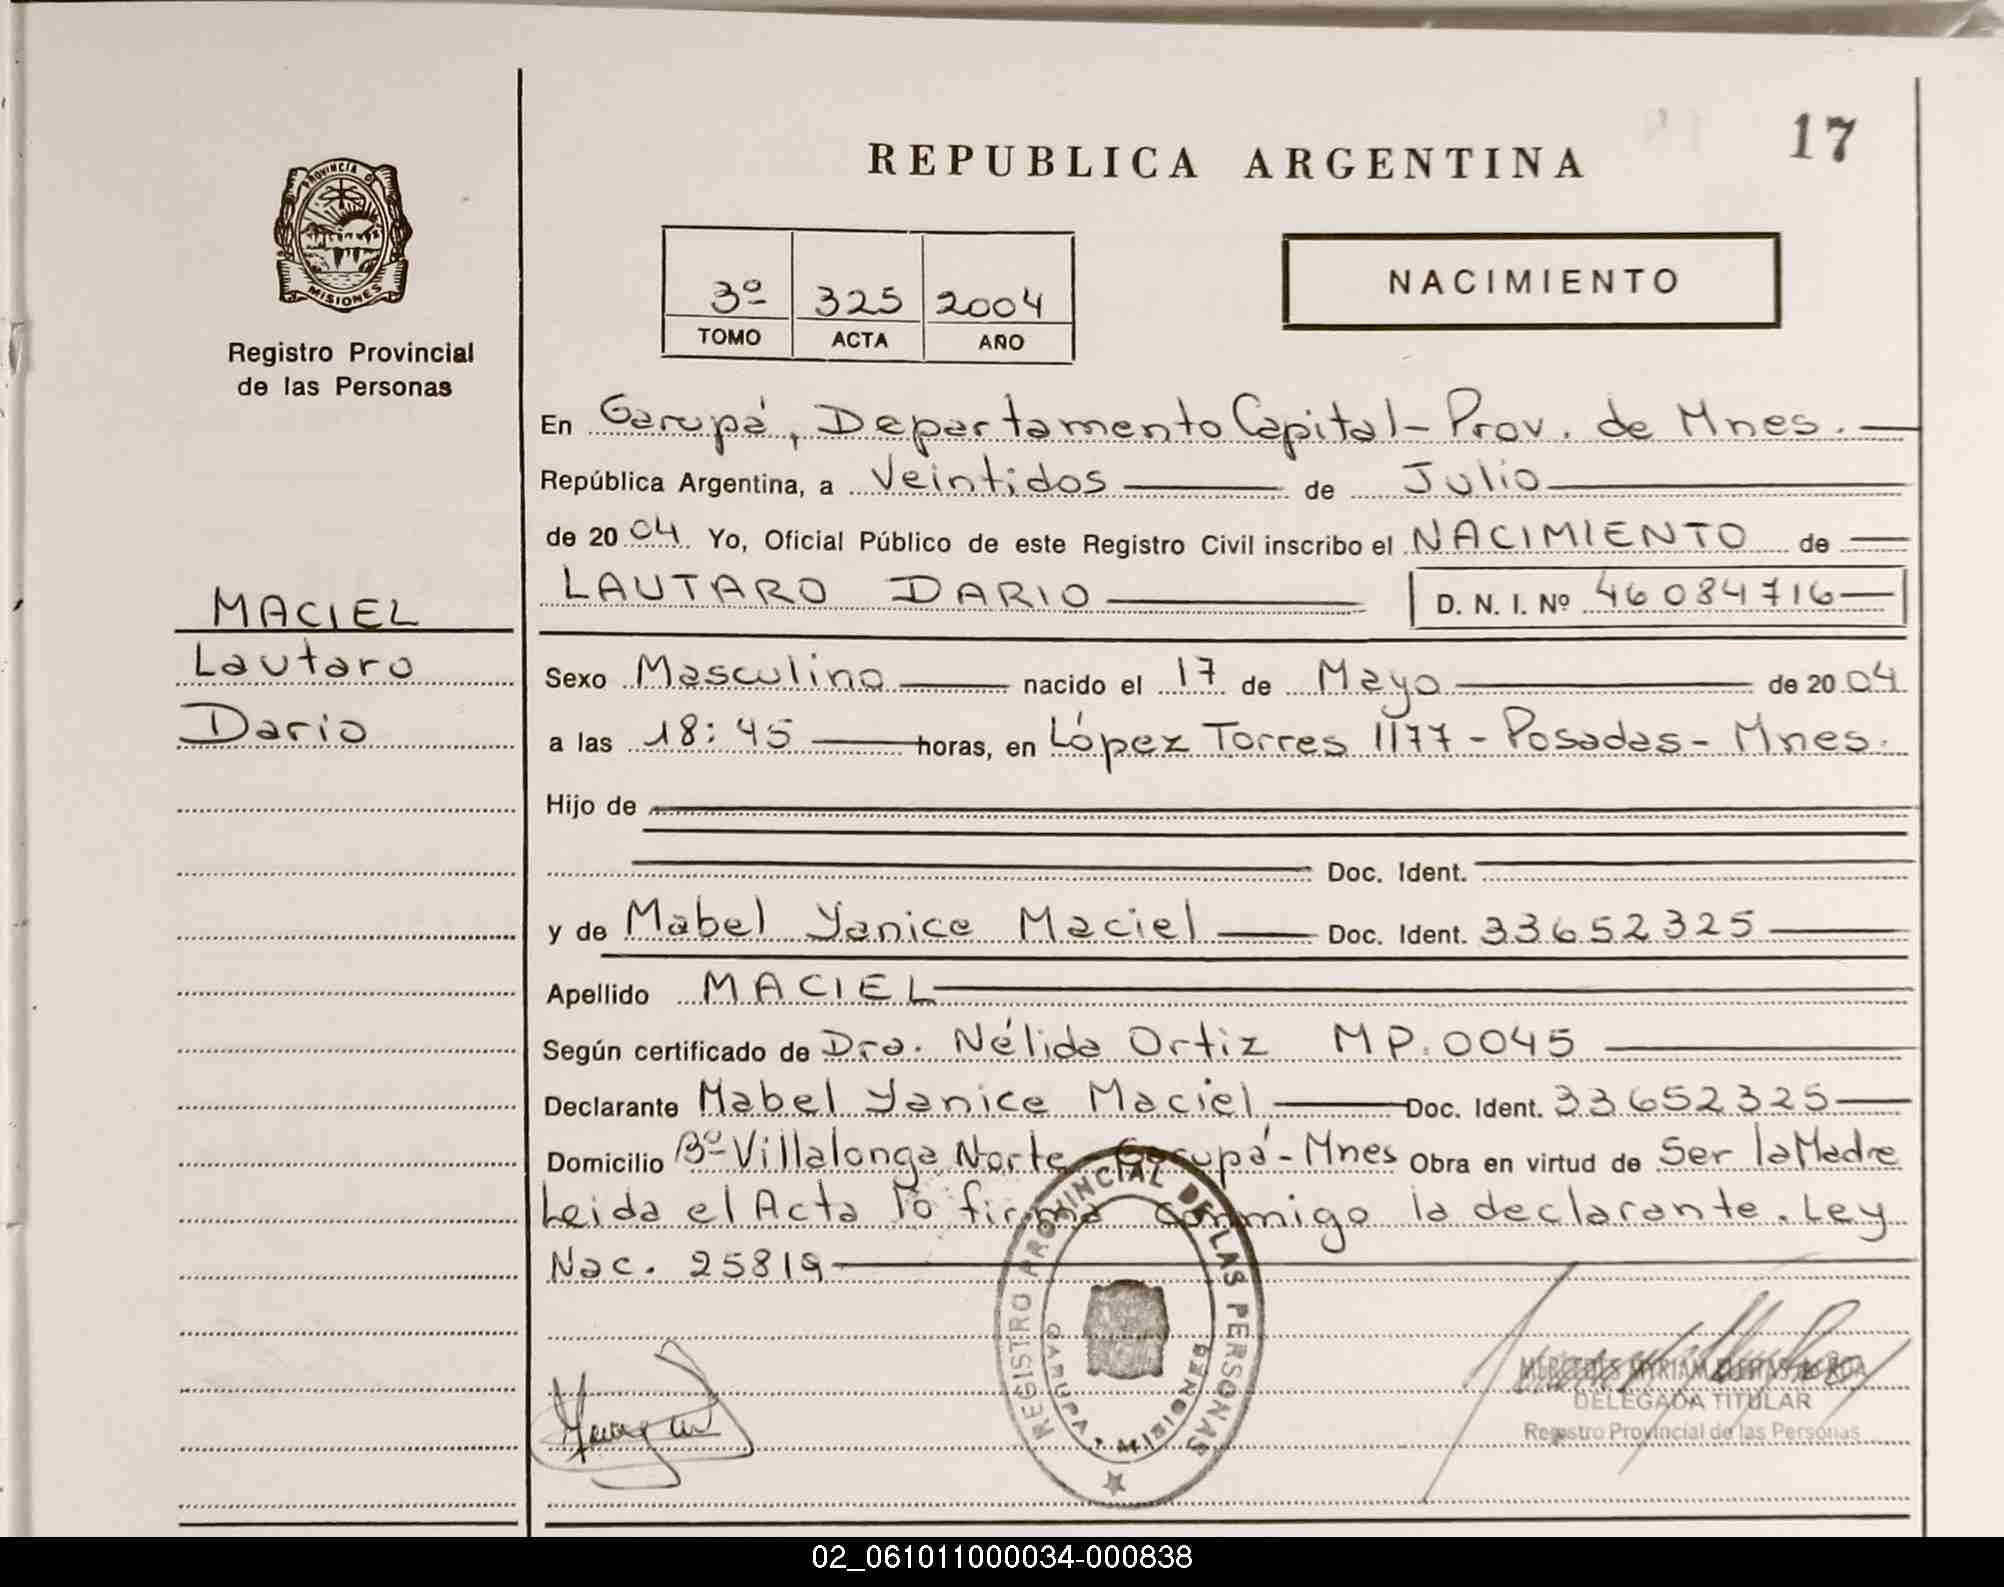 REPUBLICA ARGENTINA
17
PROVINCIA DE
MISIONES
Registro Provincial
de las Personas
3º 325 2004
TOMO ACTA AÑO
NACIMIENTO
En Garupá, Departamento Capital - Prov. de Mnes.
República Argentina, a Veintidos de Julio
de 2004 Yo, Oficial Público de este Registro Civil inscribo el NACIMIENTO de
LAUTARO DARIO D. N. I. Nº 46084716
MACIEL
Lautaro
Dario
Sexo Masculino nacido el 17 de Mayo de 2004
a las 18:45 horas, en López Torres 1177 - Posadas - Mnes.
Hijo de
Doc. Ident.
y de Mabel Yanice Maciel Doc. Ident. 33652325
Apellido MACIEL
Según certificado de Dra. Nélida Ortiz MP. 0045
Declarante Mabel Yanice Maciel Doc. Ident. 33652325
Domicilio Bº Villalonga Norte Garupá - Mnes Obra en virtud de Ser la Madre
Leida el Acta lo firma conmigo la declarante. Ley
Nac. 25819
REGISTRO PROVINCIAL DE LAS PERSONAS
GARUPA - MISIONES
MERCEDES MYRIAM
DELEGADA TITULAR
Registro Provincial de las Personas
02_061011000034-000838